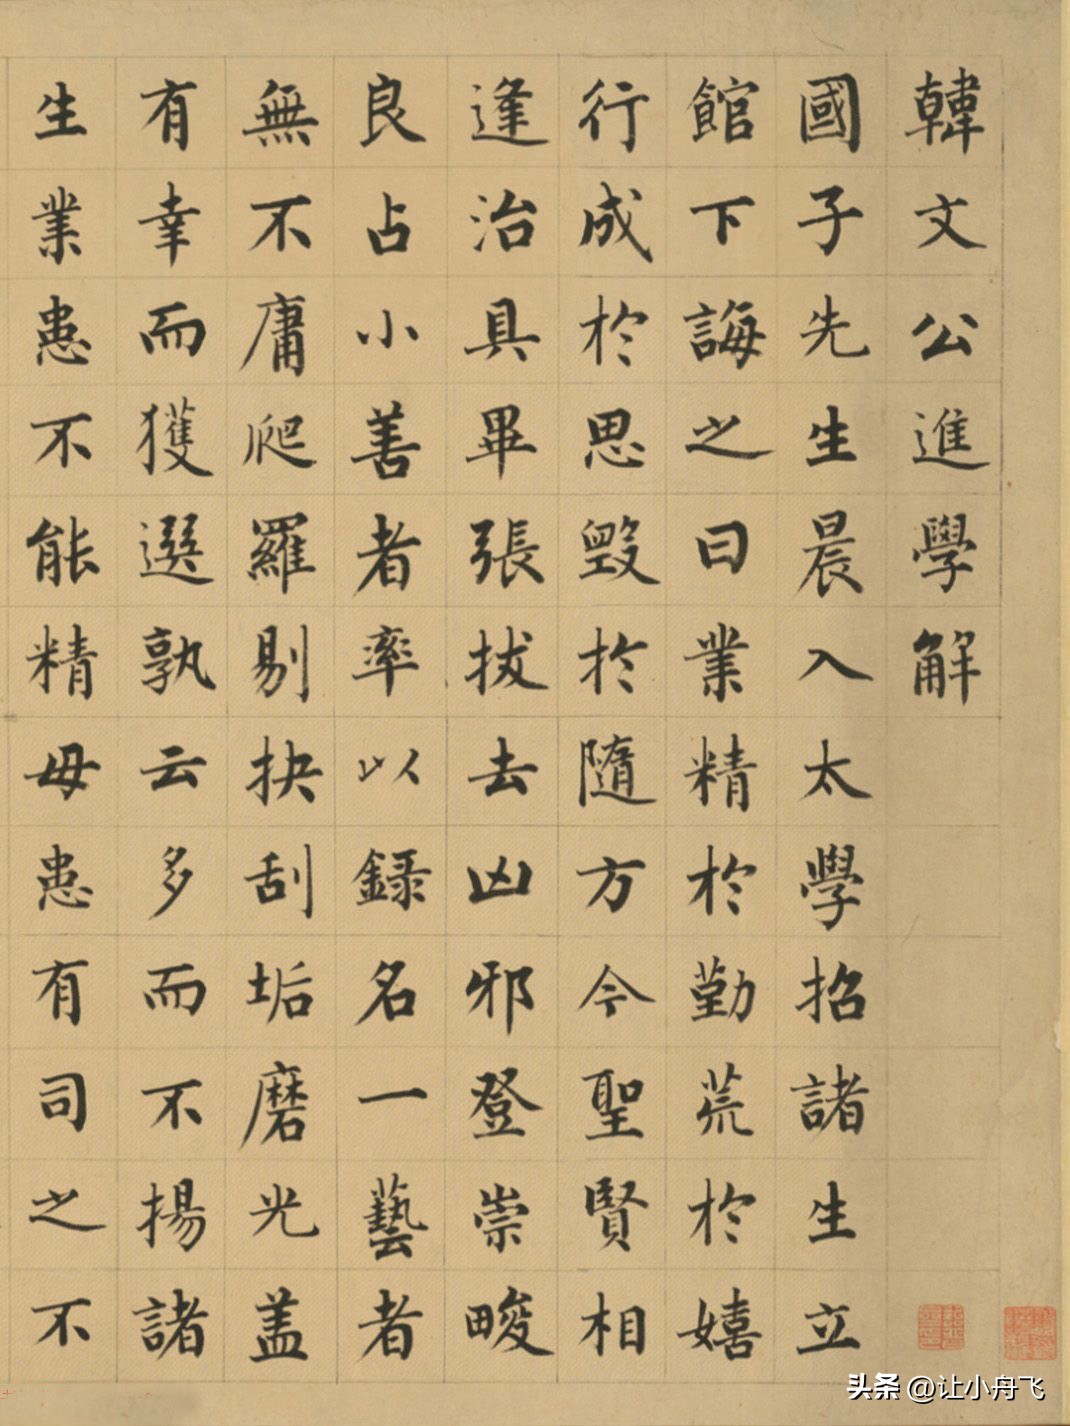 韓文公進學解
國子先生晨入太學招諸生立
館下誨之曰業精於勤荒於嬉
行成於思毀於隨方今聖賢相
逢治具畢張拔去凶邪登崇畯
良占小善者率以録名一藝者
無不庸爬羅剔抉刮垢磨光盖
有幸而獲選孰云多而不揚諸
生業患不能精毋患有司之不
头条 @让小舟飞